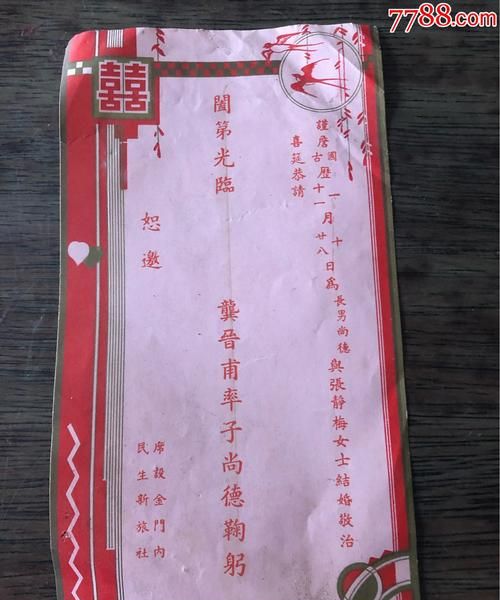 7788.com
中国收藏热线
囍
謹詹國曆一月十日為長男尚德與張靜梅女士結婚敬治
古歷十一月廿八
喜筵恭請
闔第光臨
恕邀
龔晉甫率子尚德鞠躬
席設金門內
民生新旅社